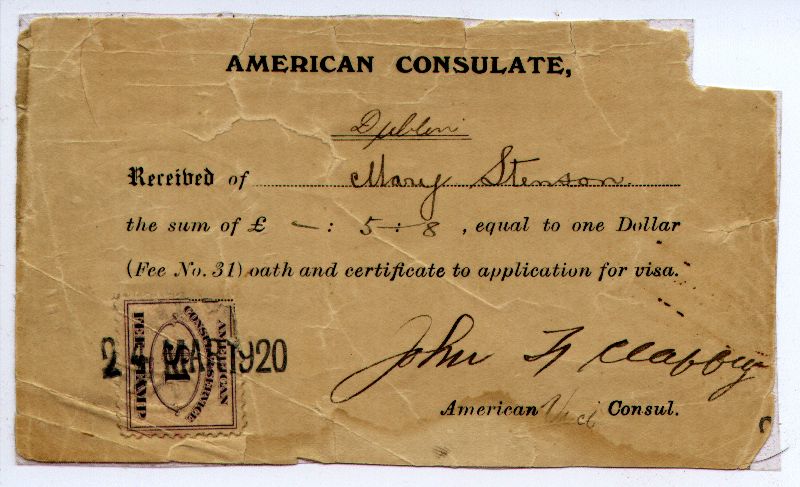 AMERICAN CONSULATE,
Dublin
Received of Mary Stenson
the sum of £ - : 5 : 8 , equal to one Dollar
(Fee No. 31) oath and certificate to application for visa.
24 MAR 1920
AMERICAN
CONSULAR SERVICE
$1
FEE STAMP
John
American Vice Consul.